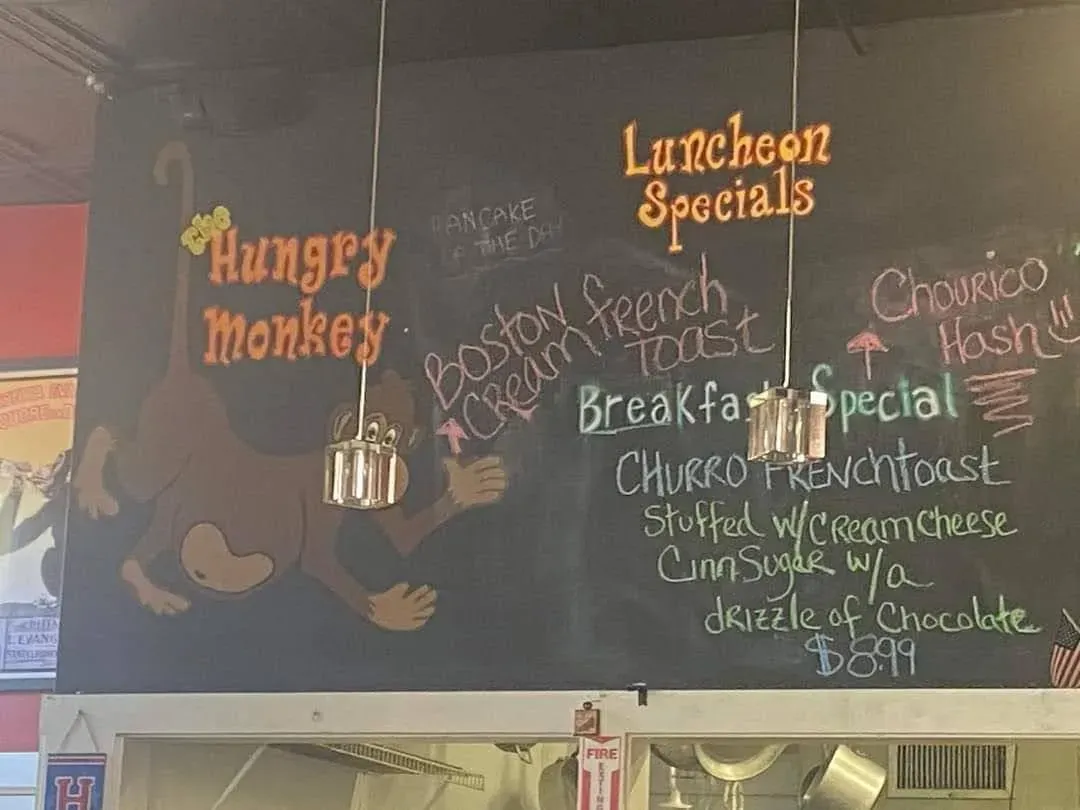 The
Hungry
Monkey
PANCAKE
OF THE DAY
Luncheon
Specials
BOSTON
CReam
fReench
TOAST
CHOURICO
Hash
Breakfast Special
CHURRO FRENCHtoast
Stuffed w/CReamCheese
CinnSugaR w/a
dRizzle of Chocolate
$8.99
FIRE
H